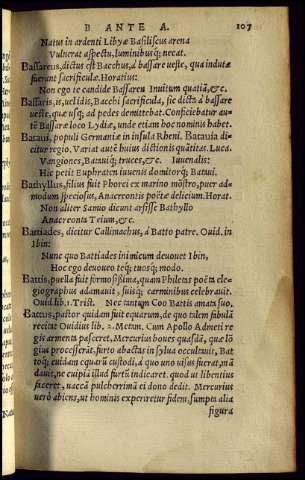 B ANTE A. 107
Natus in ardenti Libyæ Basiliscus arena
Vulnerat aspectu, luminibusq; necat.
Bassareus, dictus est Bacchus, à bassare ueste, qua indutæ
fuerunt sacrificulæ. Horatius:
Non ego te candide Bassareu Inuitum quatiā, &c.
Bassaris, is, uel idis, Bacchi sacrificula, sic dicta à bassare
ueste, quæ usq; ad pedes demittebat. Conficiebatur au-
tē Bassaræ loco Lydiæ, unde etiam hoc nominis habet.
Bataui, populi Germaniæ in insula Rheni. Batauia di-
citur regio. Variat autē huius dictionis quātitas. Luca.
Vangiones, Batauiq; truces, &c. Iuuenalis:
Hic petit Euphraten iuuenis domitorq; Bataui.
Bathyllus, filius fuit Phorci ex marino mōstro, puer ad-
modum speciosus, Anacreontis poëtæ delicium. Horat.
Non aliter Samio dicunt arsisse Bathyllo
Anacreonta Teium, &c.
Battiades, dicitur Callimachus, à Batto patre. Ouid. in
Ibin:
Nunc quo Battiades inimicum deuouet Ibin,
Hoc ego deuoueo teq; tuosq; modo.
Battis, puella fuit formosissima, quam Philetas poëta ele-
giographus adamauit, suisq; carminibus celebrauit.
Ouid. lib. 1. Trist. Nec tantum Coo Battis amata suo.
Battus, pastor quidam fuit equarum, de quo talem fabulā
recitat Ouidius lib. 2. Metam. Cum Apollo Admeti re-
gis armenta pasceret, Mercurius boues quasdā, quæ lō
gius processerāt, furto abactas in sylua occultauit, Bat
toq; cuidam equarū custodi, à quo uno uisus fuerat, mā
dauit, ne cuipiā illud furtū indicaret. quod ut libentius
faceret, uaccā pulcherrimā ei dono dedit. Mercurius
uerò abiens, ut hominis experiretur fidem, sumpta alia
figura